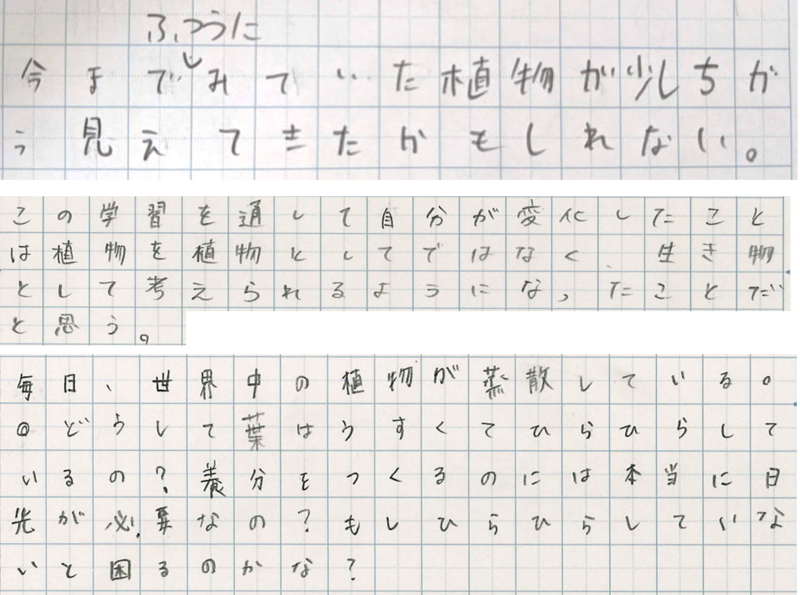 ふつうに
今までみていた植物が少しちが
う見えてきたかもしれない。
この学習を通して自分が変化したこと
は植物を植物としてではなく、生き物
として考えられるようになったことだ
と思う。
毎日、世界中の植物が蒸散している。
◎どうして葉はうすくてひらひらして
いるの?養分をつくるのには本当に日
光が必要なの?もしひらひらしていな
いと困るのかな?